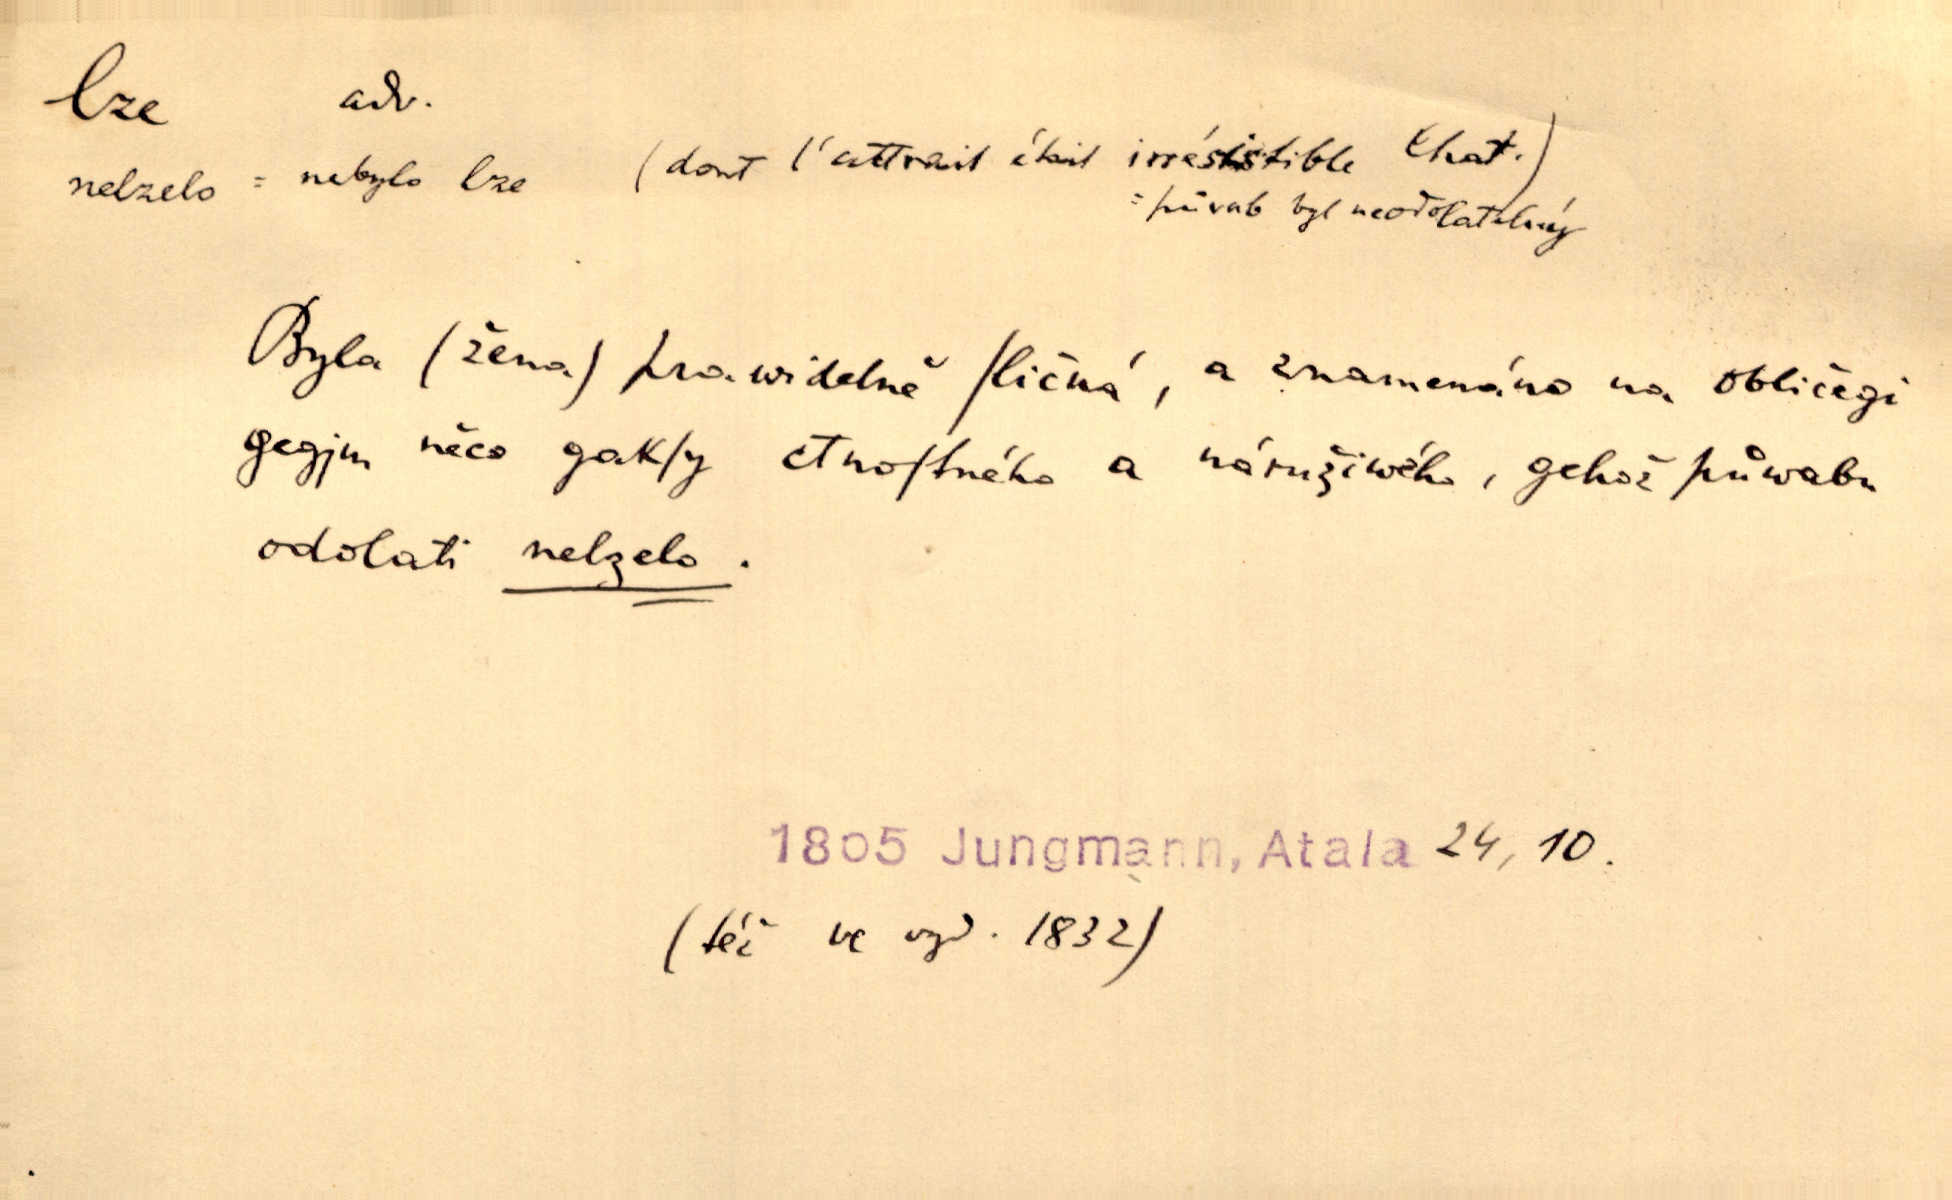 lze adv.
nelzelo = nebylo lze (dont l'attrait était irrésistible Chat.)
= půvab byl neodolatelný
Byla (žena) prawidelně ſličná, a znamenáno na obličegi
gegjm něco gakſy ctnoſtného a náružiwého, gehož půwabu
odolati nelzelo.
1805 Jungmann, Atala 24, 10.
(též ve vyd. 1832)